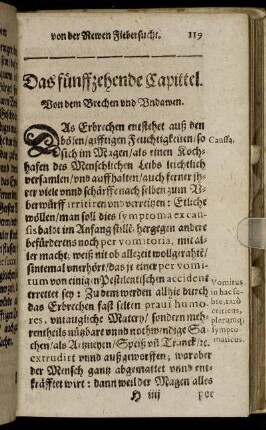 von der Newen Fiebersucht. 119
Das fünffzehende Capittel.
Von dem Brechen vnd Vndawen.
DAs Erbrechen entstehet auß den
bösen/ gifftigen Feuchtigkeiten/ so
sich im Magen/ als einen Koch-
hafen des Menschlichen Leibs liechtlich
versamlen/ vnd auffhalten/ auch ferner jh-
rer viele vnnd schärffe nach selben zum V-
berwürff irritiren vnd vereitzen: Etliche
wöllen/ man soll dies symptoma ex cau-
sis baldt im Anfang stille: hergegen andere
befürderens noch per vomitoria, mit al-
ler macht: weiß nit ob allezeit wollgerahtē/
sintemal vnerhört/ das je einer per vomi-
tum von einigen Pestilentischen accident
errettet sey: Zudem werden allhie durch
das Erbrechen fast selten praui humo-
res, vntaugliche Matery/ sondern meh-
rentheils nützbare vnnd nothwendige Sa-
chen/ als Artzneien/ Speiß vñ Tranck/ &c.
extrudirt vnnd außgeworffen; warober
der Mensch gantz abgemattet vnnd ent-
kräfftet wirt: dann weil der Magen alles
Caussa.
Vomitus
in hac fe-
bre, rarò
criticus,
plerumq;
sympto-
maticus.
H iiij
per